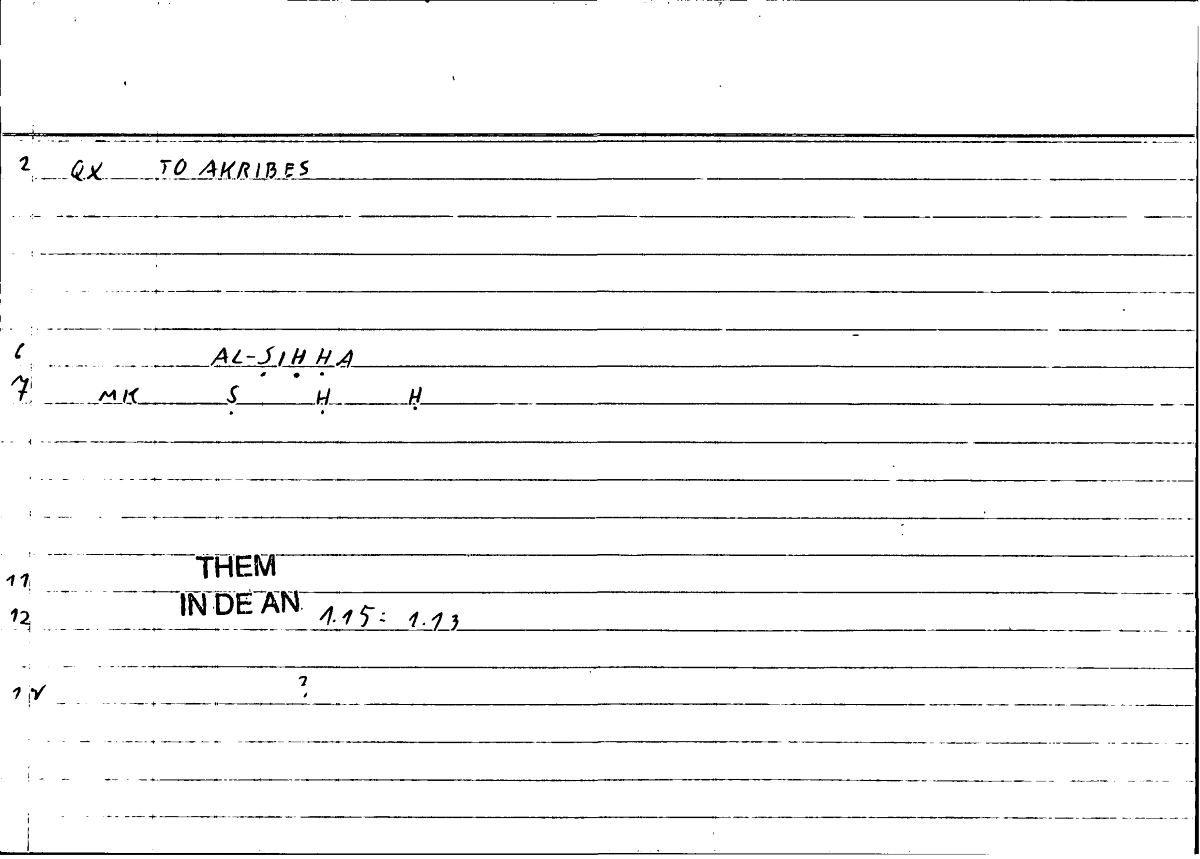 2 QX TO AKRIBES
6 AL-ṢIḤḤA
7 MK Ṣ Ḥ Ḥ
11 THEM
12 IN DE AN 1.15: 1.13
?